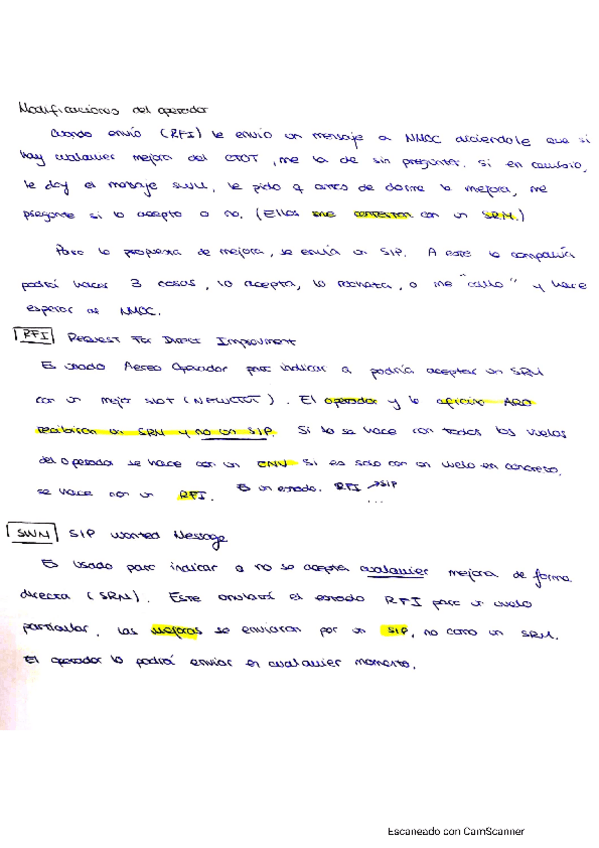 Modificaciones del operador
Cuando envío (RFI) le envío un mensaje a NMOC diciendole que si
hay cualquier mejora del CTOT, me la de sin preguntar. Si en cambio,
le doy el mensaje SWM, le pido q antes de darme la mejora, me
pregunte si lo acepto o no. (Ellos me contestan con un SRM.)
Para la propuesta de mejora, se envía un SIP. A este la compañía
podrá hacer 3 cosas, lo acepta, lo rechaza, o me "callo" y hace
esperar al NMOC.
RFI REQUEST FOR DIRECT IMPROVMENT
Es usado Aereo Operador para indicar q podría aceptar un SRM
con un mejor SLOT (NEWCTOT). El operador y la oficina ARO
recibiran un SRM y no un SIP. Si lo se hace con todos los vuelos
del operador se hace con un ENV si es solo con un vuelo en concreto,
se hace con un RFI. Es un estado. RFI → SIP
...
SWM SIP Wanted Message
Es usado para indicar q no se acepta cualquier mejora de forma
directa (SRM). Este anulará el estado RFI para un vuelo
particular. Las mejoras se enviaran por un SIP, no como un SRM.
El operador lo podrá enviar en cualquier momento.
Escaneado con CamScanner